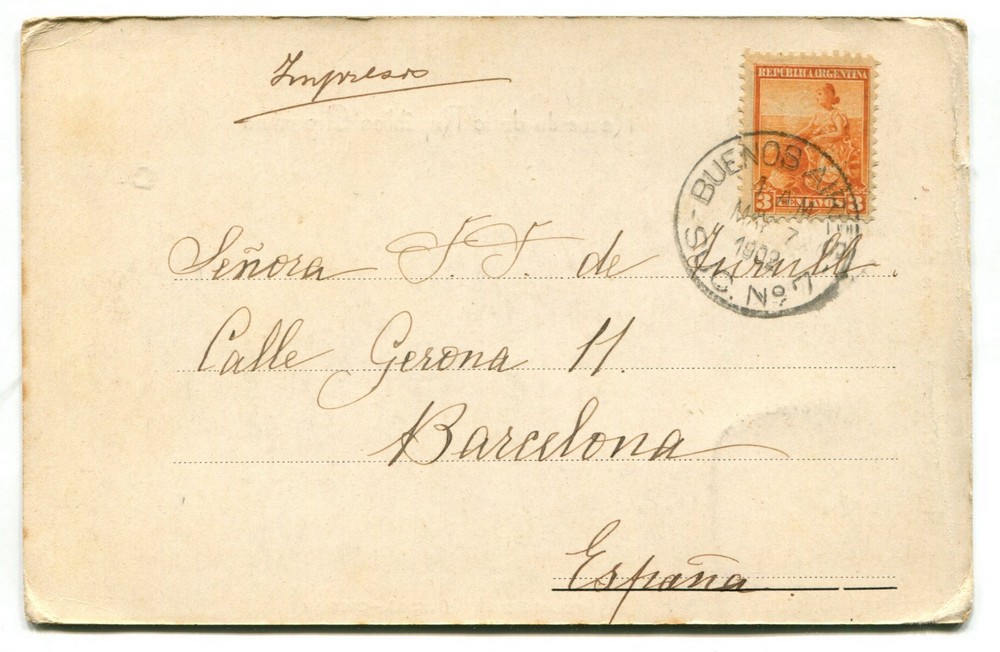 Impresos
REPUBLICA ARGENTINA
3 CENTAVOS 3
BUENOS AIRES
1 AM
MAY 7
1902
SUC. No. 7
Señora F. F. de
Calle Gerona 11.
Barcelona
España